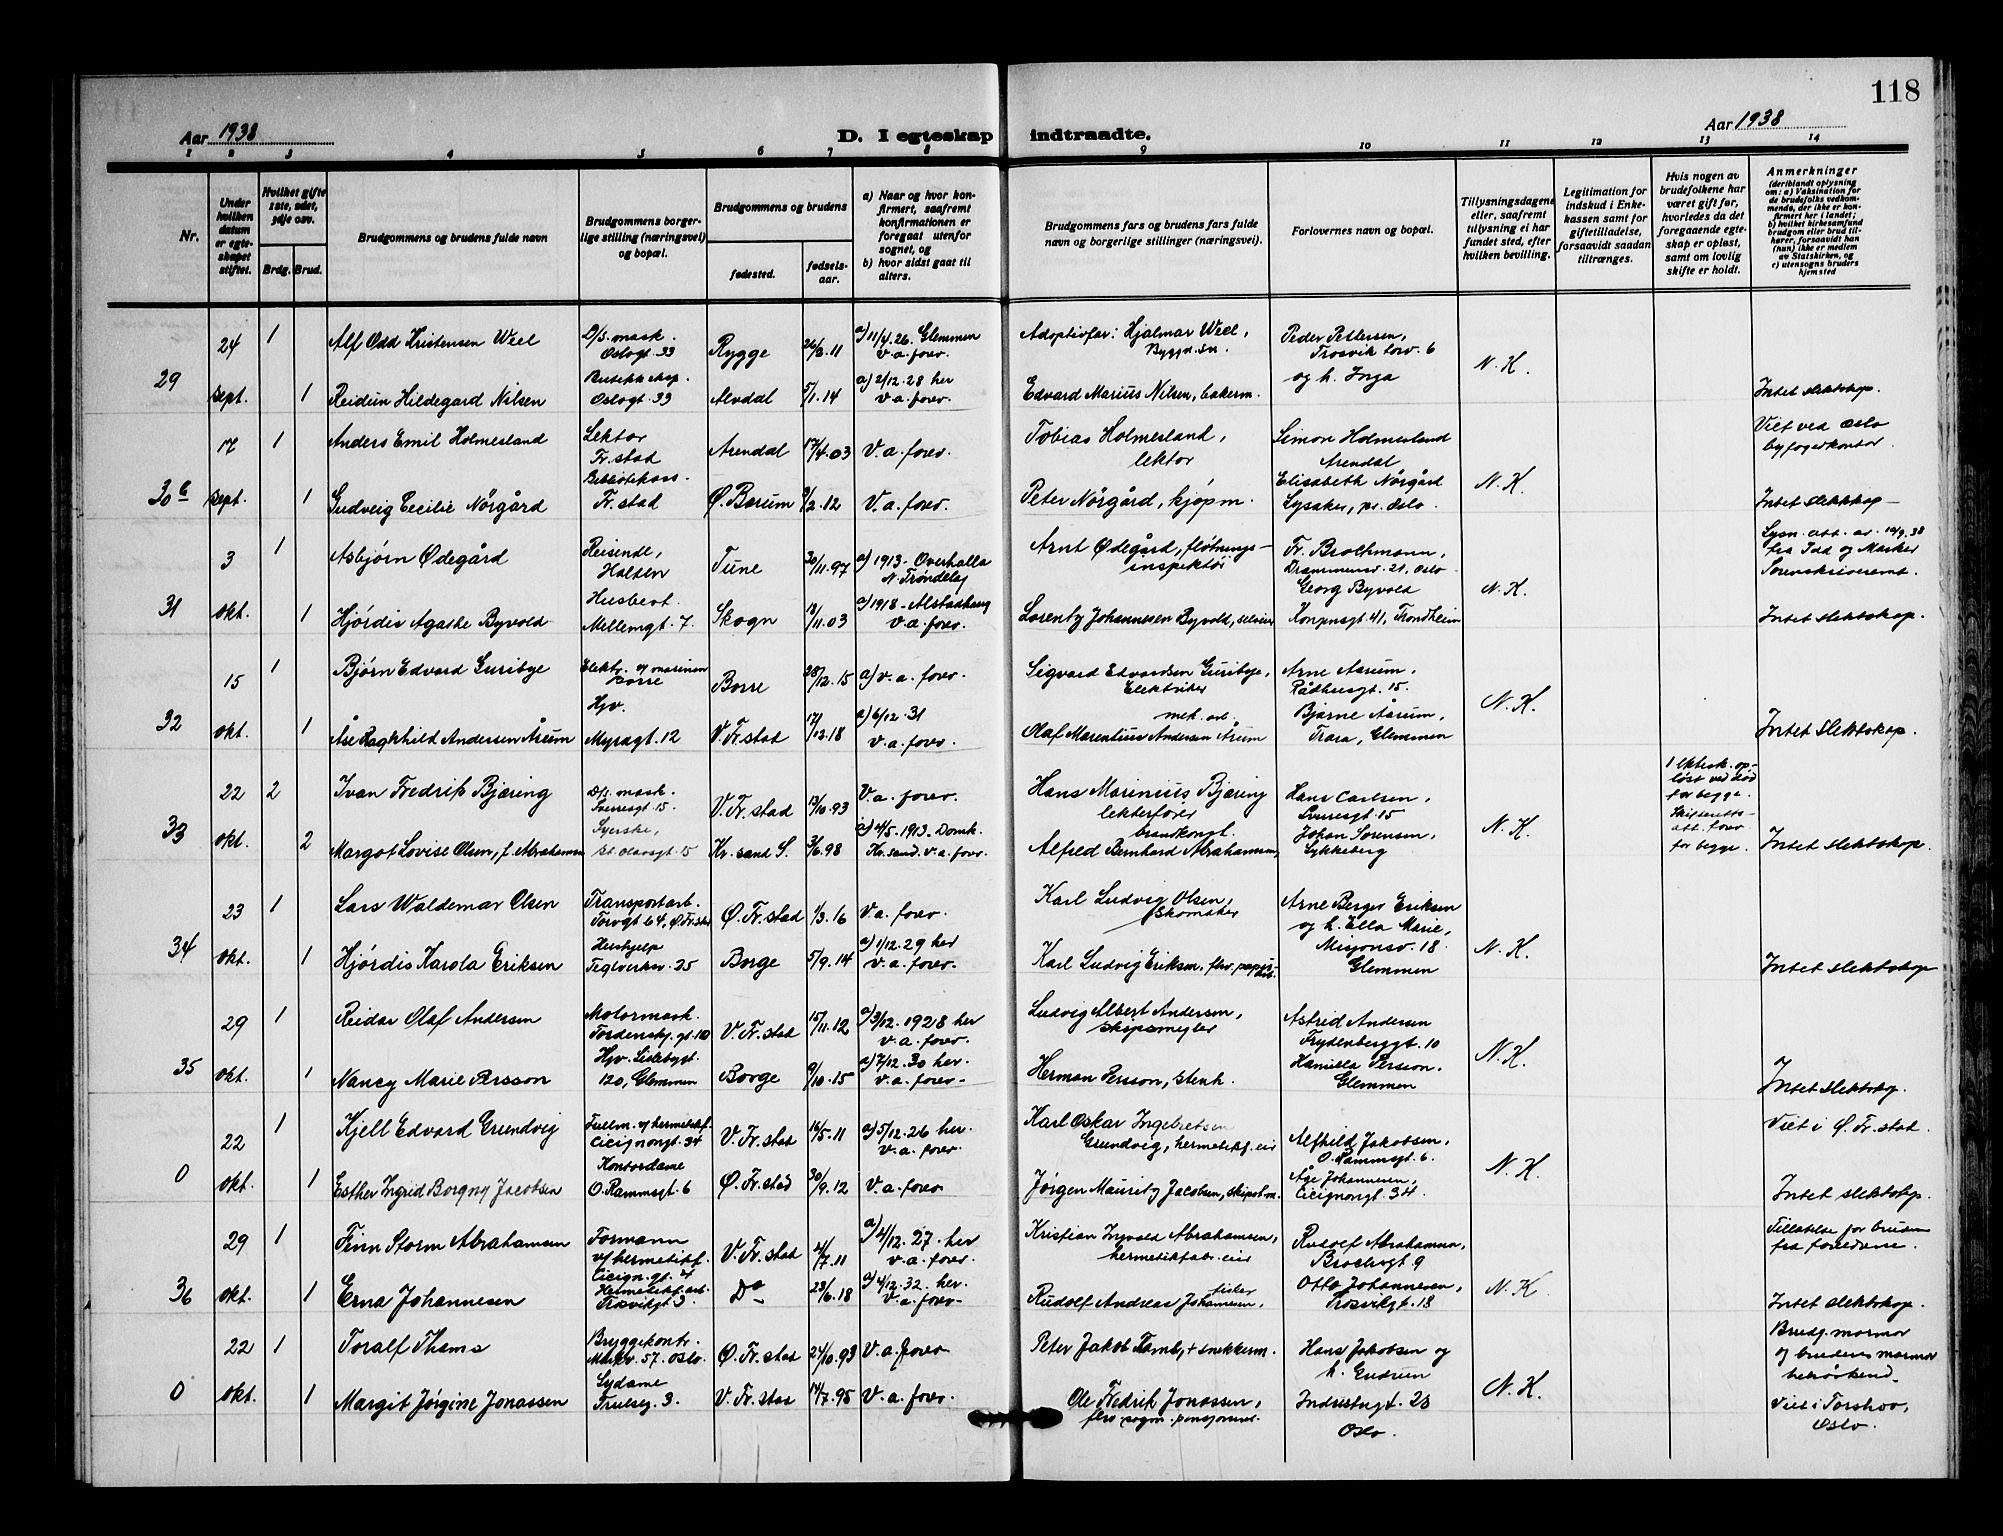 118
Aar 1938
D. I egteskap indtraadte.
Aar 1938
1 2 3 4 5 6 7 8 9 10 11 12 13 14
Nr.
Under hvilken datum er egteskapet stiftet.
Hvilket gifte 1ste, 2det, 3dje osv.
Brdg. Brud.
Brudgommens og brudens fulde navn
Brudgommens borgerlige stilling (næringsvei) og bopæl.
Brudgommens og brudens
fødested.
fødselsaar.
a) Naar og hvor konfirmert, saafremt konfirmationen er foregaat utenfor sognet, og
b) hvor sidst gaat til alters.
Brudgommens fars og brudens fars fulde navn og borgerlige stillinger (næringsvei).
Forlovernes navn og bopæl.
Tillysningsdagene eller, saafremt tillysning ei har fundet sted, efter hvilken bevilling.
Legitimation for indskud i Enkekassen samt for giftetilladelse, forsaavidt saadan tiltrænges.
Hvis nogen av brudefolkene har været gift før, hvorledes da det foregaaende egteskap er opløst, samt om lovlig skifte er holdt.
Anmerkninger
(deriblandt oplysning om: a) Vaksination for de brudefolks vedkommende, der ikke er konfirmert her i landet; b) hvilket kirkesamfund brudgom eller brud tilhører, forsaavidt han (hun) ikke er medlem av Statskirken, og c) utensogns bruders hjemsted
29
24 sept.
1 Alf Odd Kristensen Weel D/S. mask. Oslogt. 33 Rygge 26/3.11 a) 11/4.26. Glemmen v.a. forev.
Adoptivfar: Hjalmar Weel, Peder Pettersen, Trosvik torv. 6 og h. Inga N.K.
1 Reidun Hildegard Nilsen Oslogt. 33 Alvdal 5/1.14 a) 2/12.28 her v.a. forev.
Edvard Marius Nilsen, bakerm. Intet slektskap.
30 b
17 sept.
1 Anders Emil Holmesland Lektor Fr.stad Arendal 17/4.03 V.a. forev.
Tobias Holmesland, lektor Simon Holmesland Arendal N.K. Viet ved Oslo byfogerkontor.
1 Gudveig Cecilie Nørgård Fr.stad Ø. Bærum 9/2.12 V.a. forev.
Peter Nørgård, kjøpm. Elisabeth Nørgård Lysaker, pr. Oslo. Intet slektskap
31
3 okt.
1 Asbjørn Ødegård Reisende, Halden Tune 30/11.97 a) 1913- Overhalla N. Trøndelag
Arnt Ødegård, fløtningsinspektør Fr. Brochmann, Drammensv. 21, Oslo N.K. Lysn. att. av 19/9.38 fra Idd og Marker Sorenskriveremb.
1 Hjørdis Agathe Byvold Husbest. Mellemgt. 7 Skogn 18/11.03 a) 1918- Alstadhaug v.a. forev.
Lorentz Johannesen Byvold, Georg Byvold Kongensgt 41, Trondheim Intet slektskap.
32
15 okt.
1 Bjørn Edvard Guribye Elektr. v/ marinen Borre Borre 28/12.15 a) v.a. forev.
Sigvard Edvardsen Guribye, Elektriker Arne Aarum, Rådhusgt. 15. N.K.
1 Åse Raghhild Andersen Årum Hjv. Myragt. 12 V. Fr.stad 17/12.18 a) 6/12.31 v.a. forev.
mek. arb. Olaf Marentius Andersen Årum Bjarne Aarum, Trara, Glemmen Intet slektskap.
33
22 okt.
2 Ivan Fredrik Bjæring D/S. mask. Sverresgt. 15. V. Fr.stad 13/10.93 V.a. forev.
Hans Marinius Bjæring lekterfører Hans Carlsen, Sverresgt. 15 N.K. 1 Ektesk. opløst ved død for begge.
2 Margot Lovise Olsen, f. Abrahamsen Syerske, St. Olavsgt. 15 Kr. sand S. 3/6.98 1913. Domk. Kr.sand. v.a. forev.
brandkonst. Alfred Bernhard Abrahamsen, Johan Sørensen, Lykkeberg Skifteretts att. forev. for begge. Intet slektskap.
34
23 okt.
1 Lars Waldemar Olsen Transportarb. Torvgt 64, Ø. Fr.stad Ø. Fr.stad 1/3.16 V.a. forev.
Karl Ludvig Olsen, skomaker Arne Berger Eriksen og h. Ella Marie, Misjonsv. 18 Glemmen N.K.
1 Hjørdis Karola Eriksen Hushjelp Teglverksv. 35 Borge 5/9.14 a) 1/12.29 her v.a. forev.
Karl Ludvig Eriksen, Intet slektskap
35
29 okt.
1 Reidar Olaf Andersen Motormask. Tordenskj. gt. 10 V. Fr.stad 15/11.12 a) 3/12.1928 her v.a. forev.
Ludvig Albert Andersen, skipsmegler Astrid Andersen Frydenberggt. 10 N.K.
1 Nancy Marie Persson Hjv. Lislebygt. 120, Glemmen Borge 9/10.15 a) 7/12.30 her. v.a. forev.
Herman Persson, stenh. Persson. Glemmen Intet slektskap.
0
22 okt.
1 Kjell Edvard Grundvig Fullm. v/ hermetikf. Cicignongt. 34 V. Fr.stad 16/5.11 a) 5/12.26 her. v.a. forev.
Karl Oskar Ingebretsen Grundvig, hermetikf. eier Alfhild Jakobsen, O. Rammsgt. 6. N.K. Viet i Ø. Fr.stad.
1 Esther Ingrid Borgny Jacobsen Kontordame O. Rammsgt. 6 Ø. Fr.stad 30/9.12 V.a. forev
Jørgen Mauritz Jacobsen, Åge Johannesen, Cicignongt. 34 Intet slektskap.
36
29 okt.
1 Finn Storm Abrahamsen Formann v/ hermetikf. Cicign. gt. 4 V. Fr.stad 4/7.11 a) 4/12.27. her v.a. forev.
Kristian Ingvald Abrahamsen, hermetikfabr. eier Rudolf Abrahamsen, Brochsgt 9 N.K. Tillatelse for bruden fra foreldrene.
1 Erna Johannesen Hermetikf. arb. Trosvikgt. 3. Do 23/6.18 a) 4/12.32. her. v.a. forev.
fisker Rudolf Andreas Johannesen, Otto Johannesen, Trosvikgt. 18 Intet slektskap.
0
22 okt.
1 Toralf Thams Bryggekontr. Markv. 57. Oslo. Ø. Fr.stad 24/10.93 V.a. forev
Peter Jakob snekkerm. Hans Jakobsen og h. Gudrun N.K. Brudg. mormor og brudens mormor
1 Margit Jørgine Jonassen Sydame Trulseg. 3. V. Fr.stad 14/7.95 V.a. forev.
Ole Fredrik Jonassen, Industrigt. 23 Oslo. Viet i Torshov, Oslo.